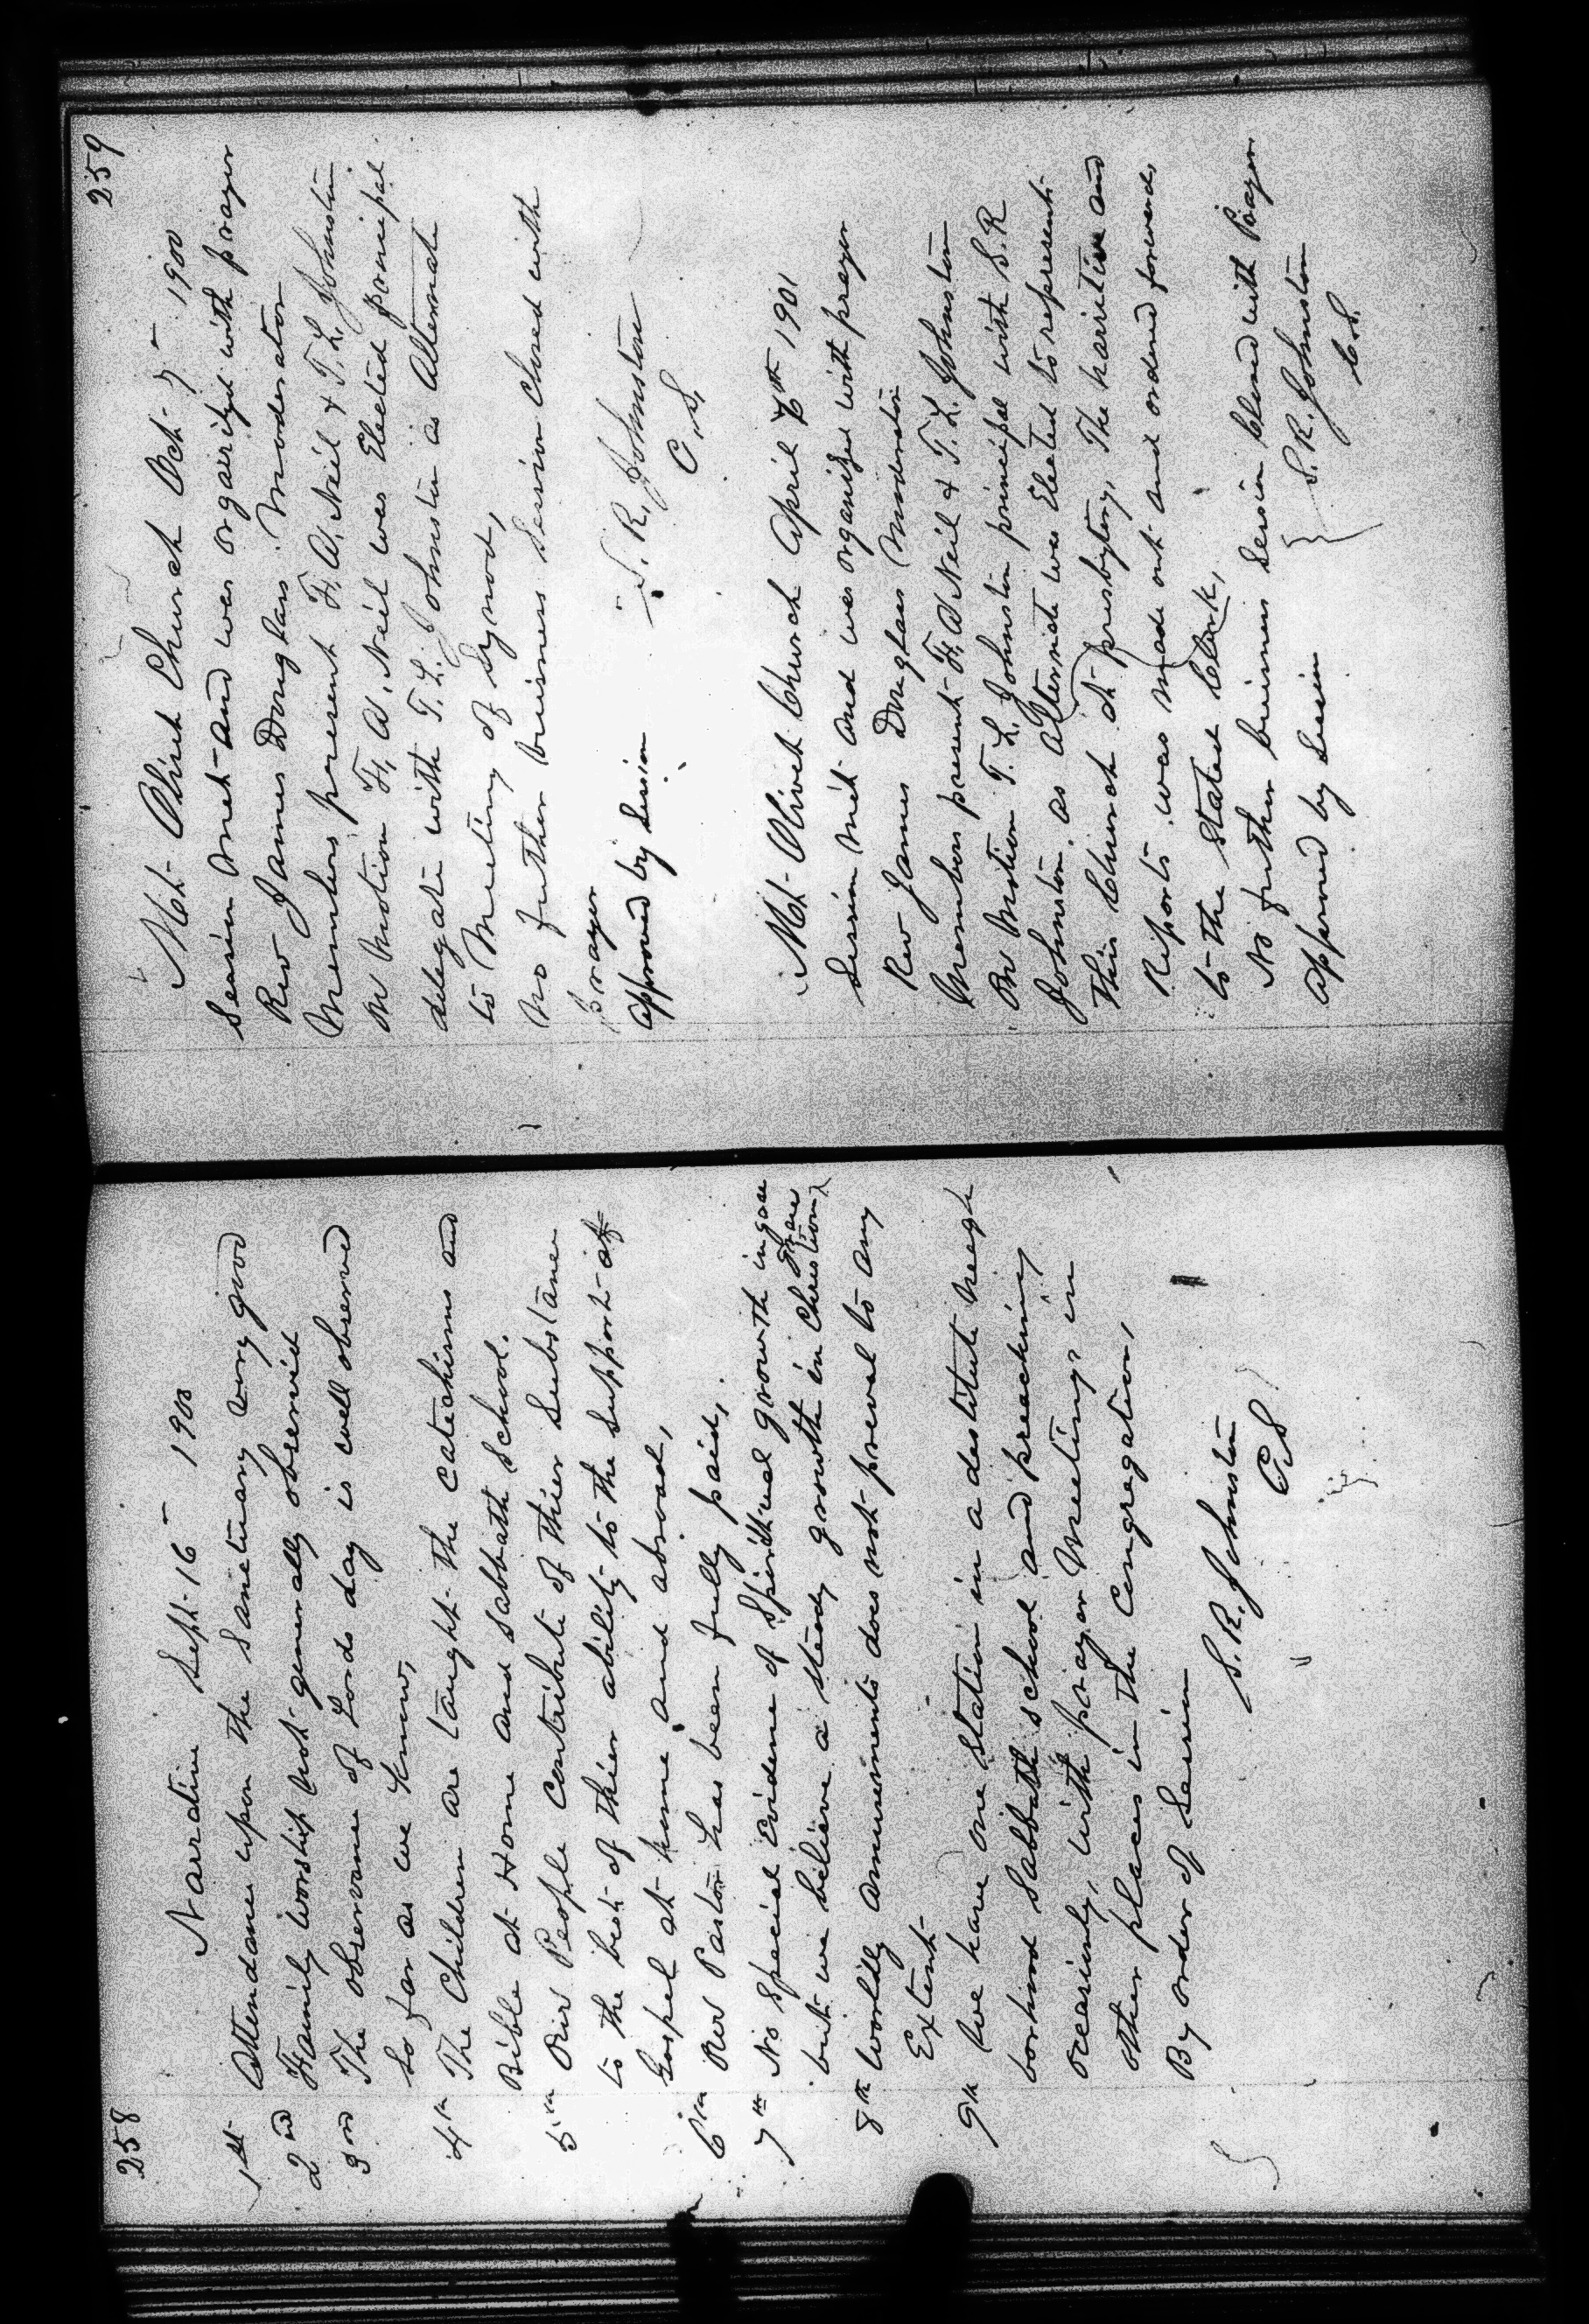 258
Narrative Sept- 16 - 1900
1st Attendance upon the Sanctuary very good
2nd Family worship not generally observed
3rd The observance of Lords day is well observed
so far as we know,
4th The Children are taught the Catechisms and
Bible at Home and Sabbath School.
5th Our People Contribute of thier Substance
to the best of thier ability to the Support of
Gospel at home and abroad,
6th Our Pastor has been fully paid,
7th No Special Evidence of Spiritual growth in grace
but we believe a steady growth in Christian
8th Worldly amusements does not preval to any
Extent
9th We have one Station in a destitute neigh
borhood Sabbath School and preaching
occasionly, with prayer Meetings in
other places in the Congregation,
By order of Session
S. R. Johnston
C S
259
Mt- Olivet Church Oct- 7 - 1900
Session Met and was organized with prayer
Rev James Douglass Moderator
Members present F. A. Neil & T. L. Johnston
On Motion F. A. Neil was Elected principal
delegate with T. L. Johnston as Alternate
to Meeting of Synod,
No further business Session Closed with
prayer
Approved by Session S. R. Johnston
C. S.
Mt- Olivet Church April 1901
Session Met and was organized with prayer
Rev James Douglass Moderator
Members present F. A Neil & T. L. Johnston
On Motion T. L. Johnston principal with S. R
Johnston as Alternate was Elected to represent
This Church at presbytery, The narritive and
Reports was made out and ordered forwarded
to the Stated Clerk,
No further business Session Closed with Prayer
Approved by Session S. R. Johnston
C. S.